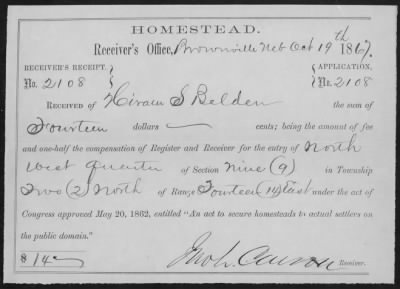 HOMESTEAD.
Receiver's Office, Brownville Neb Oct 19th 1867.
RECEIVER'S RECEIPT, APPLICATION,
No. 2108 No. 2108
RECEIVED OF Hiram S Belden the sum of
Fourteen dollars — cents; being the amount of fee
and one-half the compensation of Register and Receiver for the entry of North
West Quarter of Section Nine (9) in Township
Two (2) North of Range Fourteen (14) East under the act of
Congress approved May 20, 1862, entitled "An act to secure homesteads to actual settlers on
the public domain."
$ 14 Jno L. Carson Receiver.